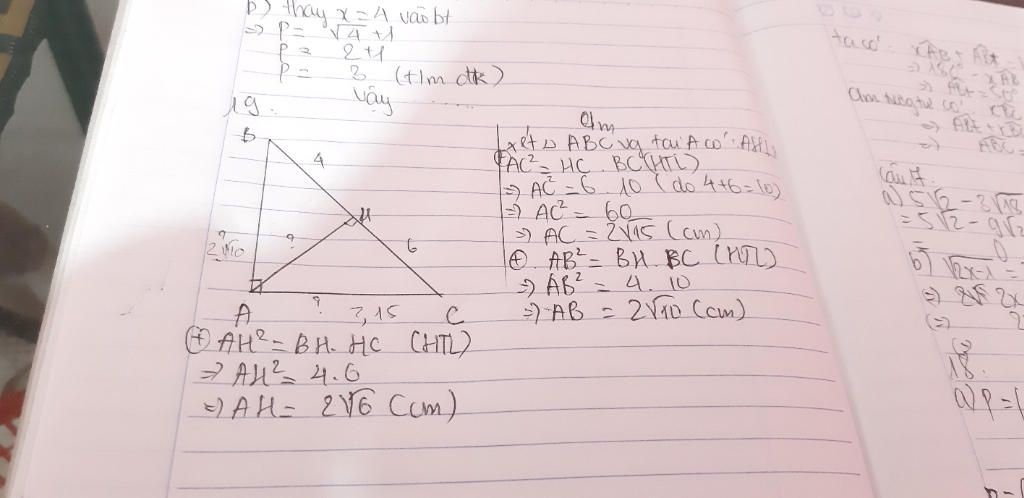 b) thay x = 4 vào bt
=> P = √4 + 1
P = 2 + 1
P = 3 (tlm đk)
Vậy .....
19.
B
4
H
?
2√10
?
6
A
?
C
Clm
xét △ ABC vg tại A có: AH
⊕ AC² = HC . BC (HTL)
=> AC² = 6 . 10 (do 4+6=10)
=> AC² = 60
=> AC = 2√15 (cm)
⊕ AB² = BH . BC (HTL)
=> AB² = 4 . 10
=> AB = 2√10 (cm)
⊕ AH² = BH . HC (HTL)
=> AH² = 4.6
=> AH = 2√6 (cm)
ta có:
Clm tương tự có
câu 17.
a) 5√2 - 3√18
= 5√2 - 9√2
b) √2x-1 =
18.
a) P = (